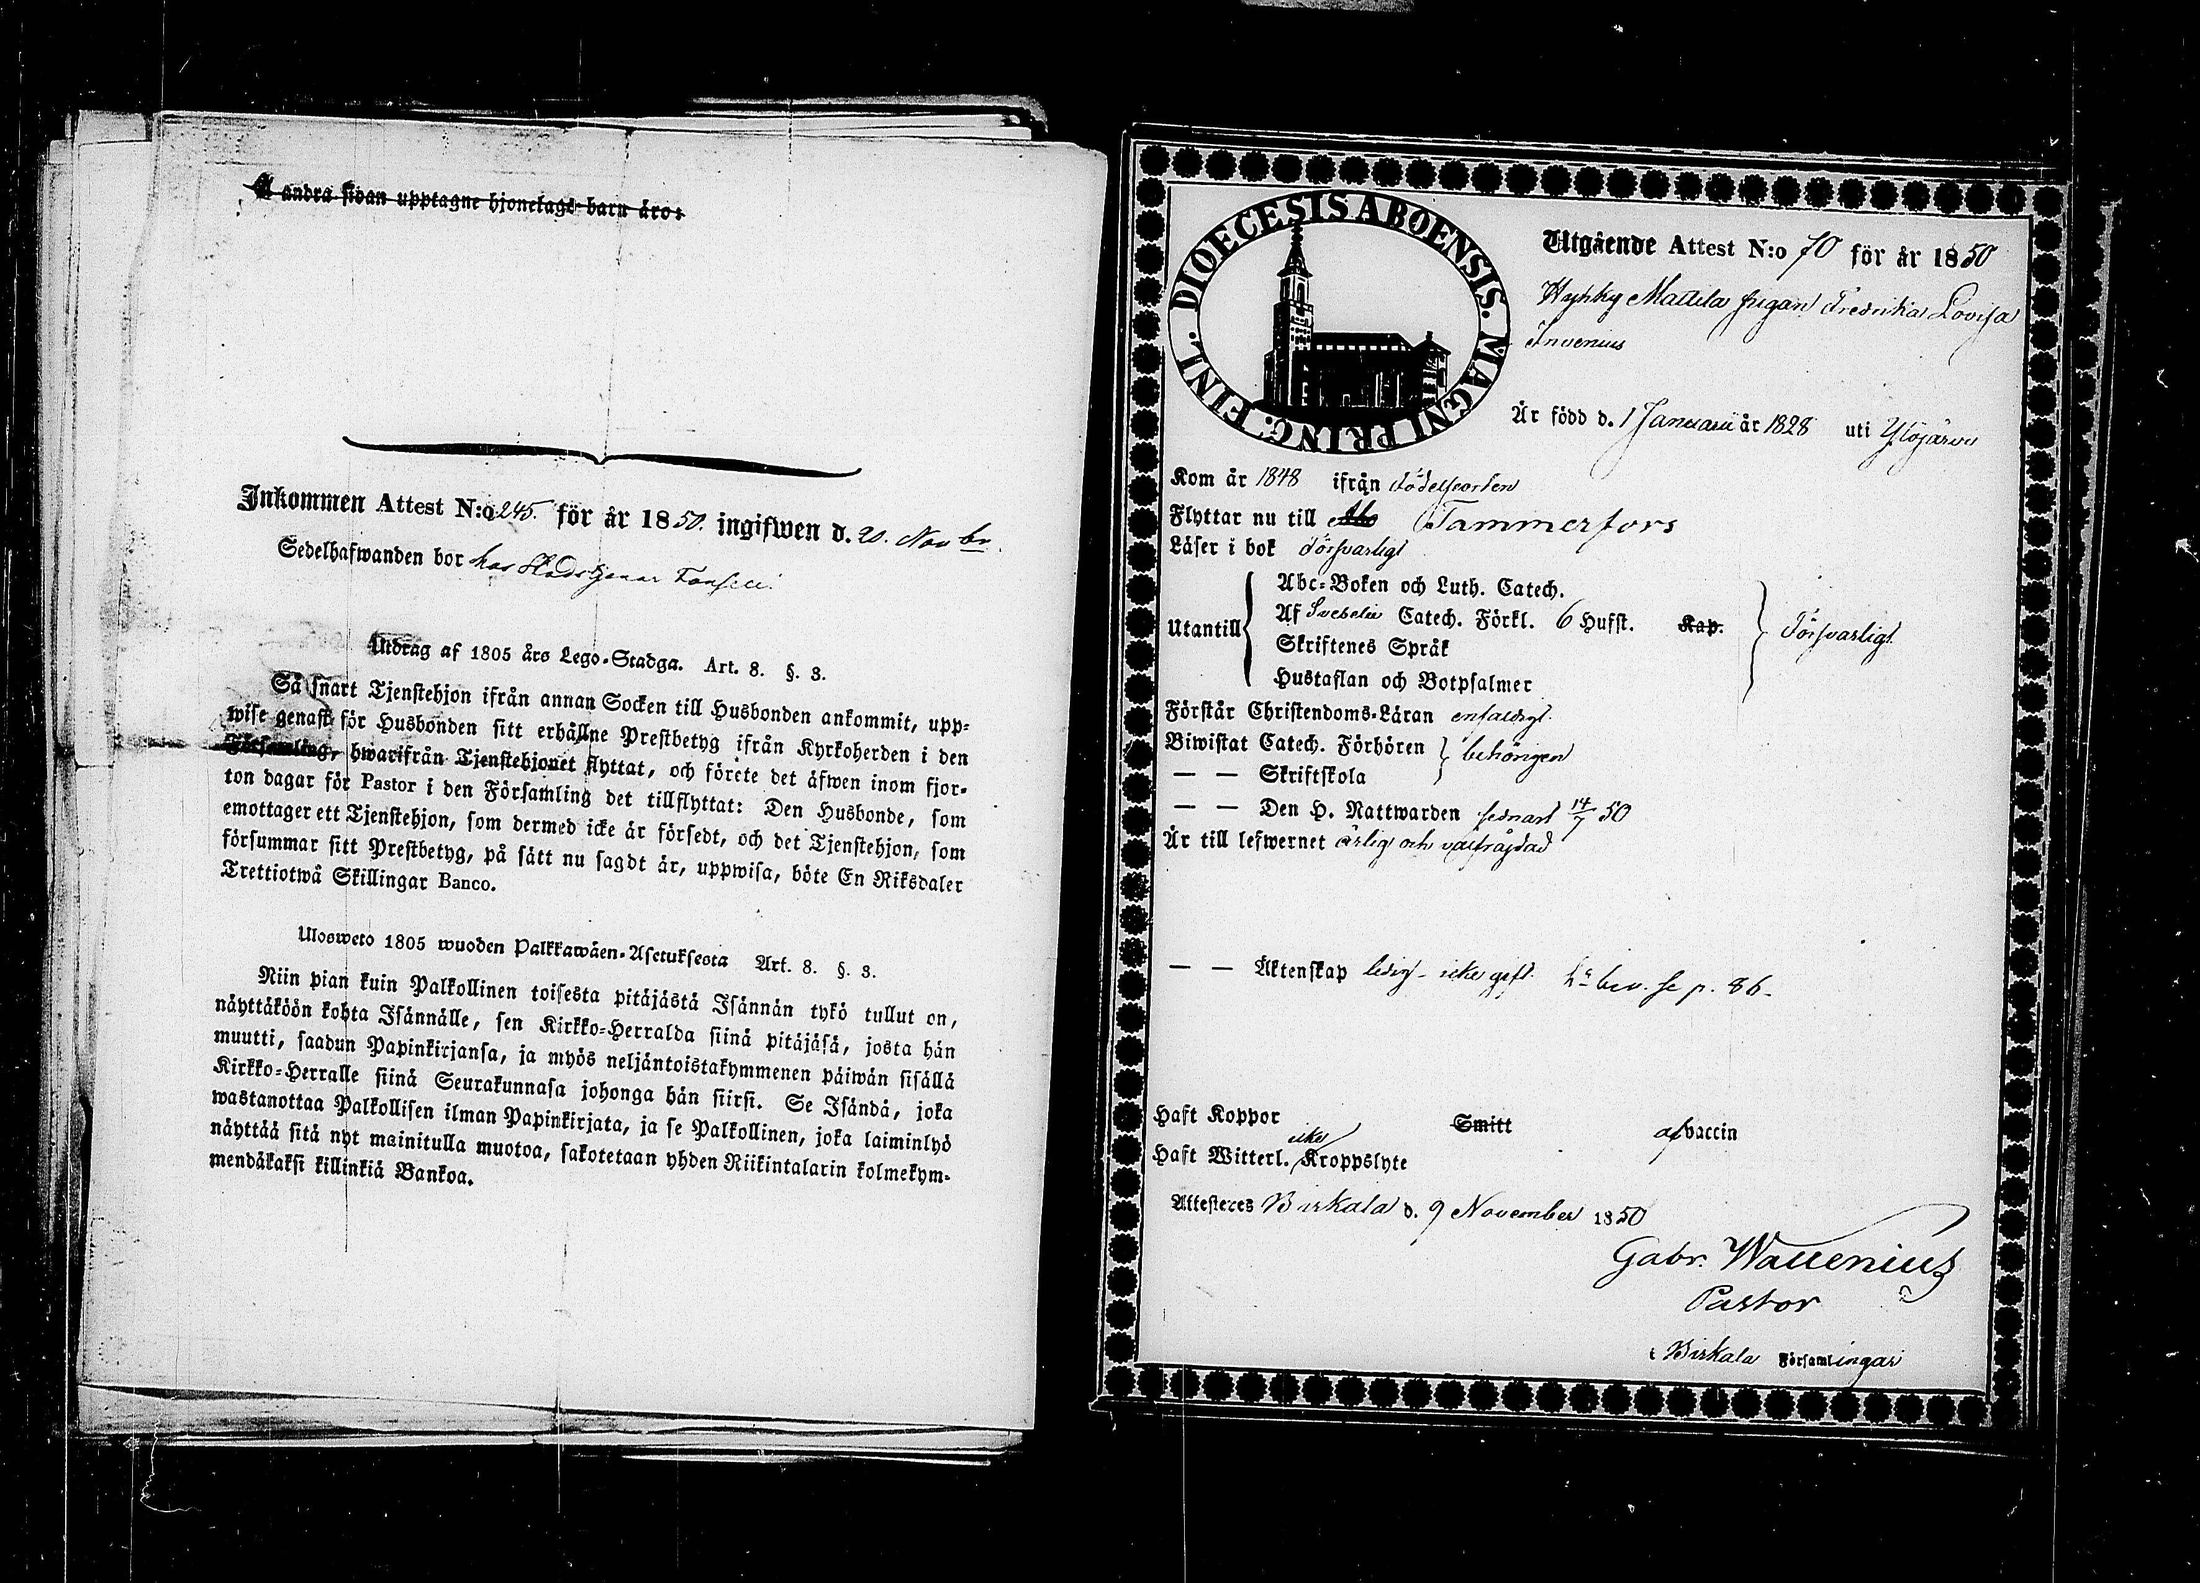 A andra sidan upptagne hjonelags-barn äro:
Inkommen Attest N:o 245. för år 1850. ingifwen d. 20. Novbr.
Sedelhafwanden bor hos
Utdrag af 1805 års Lego-Stadga. Art. 8. §. 3.
Så snart Tjenstehjon ifrån annan Socken till Husbonden ankommit, upp-
wise genast för Husbonden sitt erhållne Prestbetyg ifrån Kyrkoherden i den
Församling, hwarifrån Tjenstehjonet flyttat, och förete det äfwen inom fjor-
ton dagar för Pastor i den Församling det tillflyttat: Den Husbonde, som
emottager ett Tjenstehjon, som dermed icke är försedt, och det Tjenstehjon, som
försummar sitt Prestbetyg, på sätt nu sagdt är, uppwisa, böte En Riksdaler
Trettiotwå Skillingar Banco.
Ulosweto 1805 wuoden Palkkawäen-Asetuksesta Art. 8. §. 3.
Niin pian kuin Palkollinen toisesta pitäjästä Isännän tykö tullut on,
näyttäköön kohta Isännälle, sen Kirkko-Herralda siinä pitäjäsä, josta hän
muutti, saadun Papinkirjansa, ja myös neljäntoistakymmenen päiwän sisällä
Kirkko-Herralle siinä Seurakunnasa johonga hän siirsi. Se Isändä, joka
wastanottaa Palkollisen ilman Papinkirjata, ja se Palkollinen, joka laiminlyö
näyttää sitä nyt mainitulla muotoa, sakotetaan yhden Riikintalarin kolmekym-
mendäkaksi killinkiä Bankoa.
DIOECESIS ABOENSIS. MAGNI PRINC. FINL.
Utgående Attest N:o 70 för år 1850
Hyhky Mattila pigan Fredrika Lovisa
Invenius
Är född d. 1 Januari år 1828 uti Ylöjärvi
Kom år 1848 ifrån födelseorten
Flyttar nu till Åbo Tammerfors
Läser i bok försvarligt
Abc-Boken och Luth. Catech.
Utantill Af Svebelii Catech. Förkl. 6 Hufst. Kap. försvarligt
Skriftenes Språk
Hustaflan och Botpsalmer
Förstår Christendoms-Läran enfaldigt
Biwistat Catech. Förhören behörigen
— — Skriftskola
— — Den H. Nattwarden sednast 14/7 50
Är till lefwernet ärlig och välfrägdad
— — Äktenskap ledig - icke gift. se p. 86.
Haft Koppor Smitt af vaccin
Haft Witterl. icke Kroppslyte
Attesteres Birkala d. 9 November 1850
Gabr. Wallenius
Pastor
i Birkala Församlingar